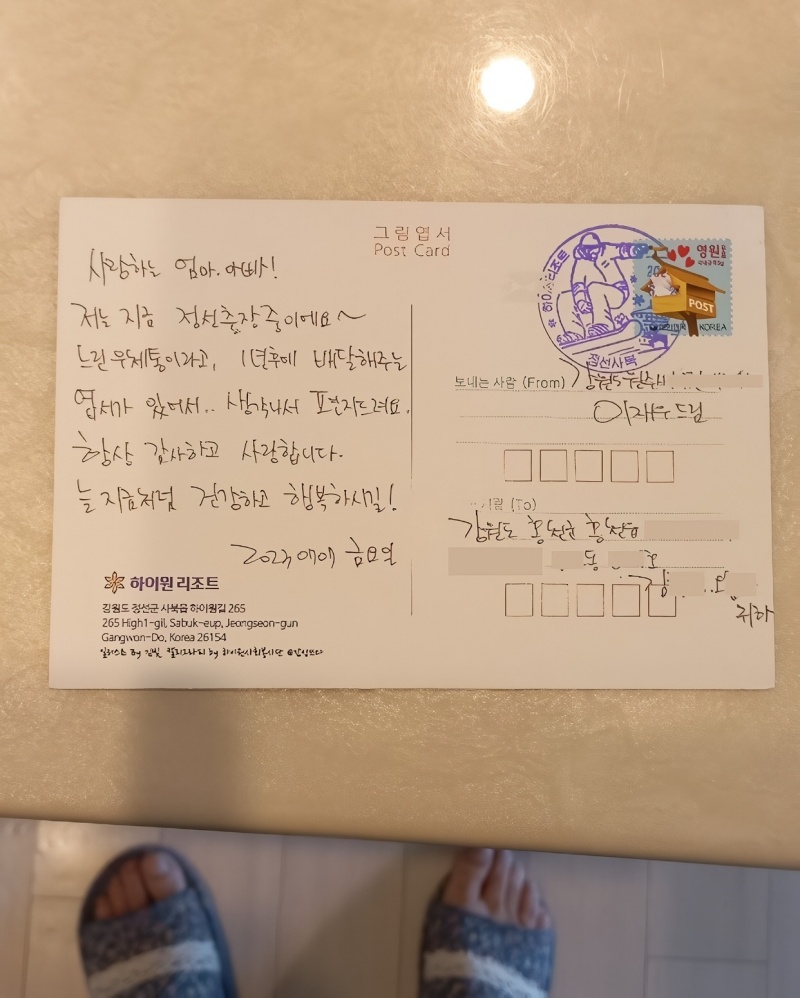 그림엽서
Post Card
사랑하는 엄마.아빠!
저는 지금 정선출장중이에요~
느린우체통이라고, 1년후에 배달해주는
엽서가 있어서.. 생각나서 편지드려요.
항상 감사하고 사랑합니다.
늘 지금처럼 건강하고 행복하시길!
2023, 07.07 금요일
하이원리조트
강원도 정선군 사북읍 하이원길 265
265 High1-gil, Sabuk-eup, Jeongseon-gun
Gangwon-Do, Korea 26154
일러스트 By 김빛 캘리그라피 by 하이원사회봉사단
하이원리조트
정선사북
영원우표
POST
KOREA
보내는 사람 (From) 강원도 원주시
이재우드림
사람 (To)
강원도 홍천군 홍천읍
동 호
귀하